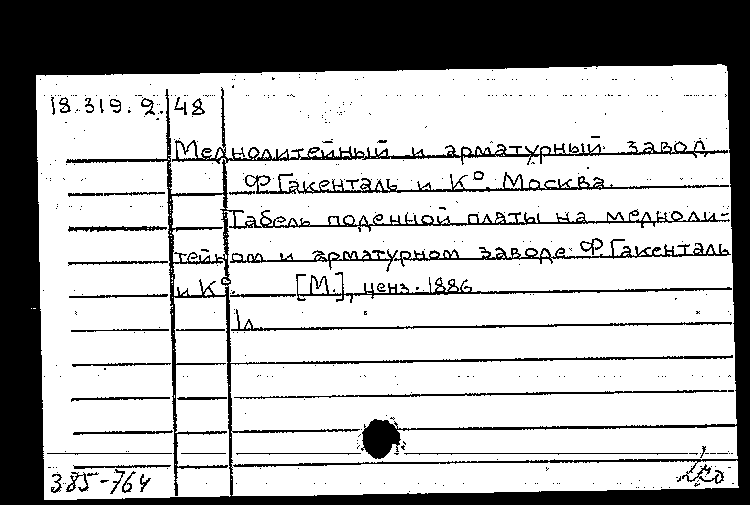 18.319.2.48
Меднолитейный и арматурный завод
Ф. Гакенталь и К°. Москва.
Табель поденной платы на медноли-
тейном и арматурном заводе Ф. Гакенталь
и К°. [М.], ценз. 1886.
1 л.
385-764